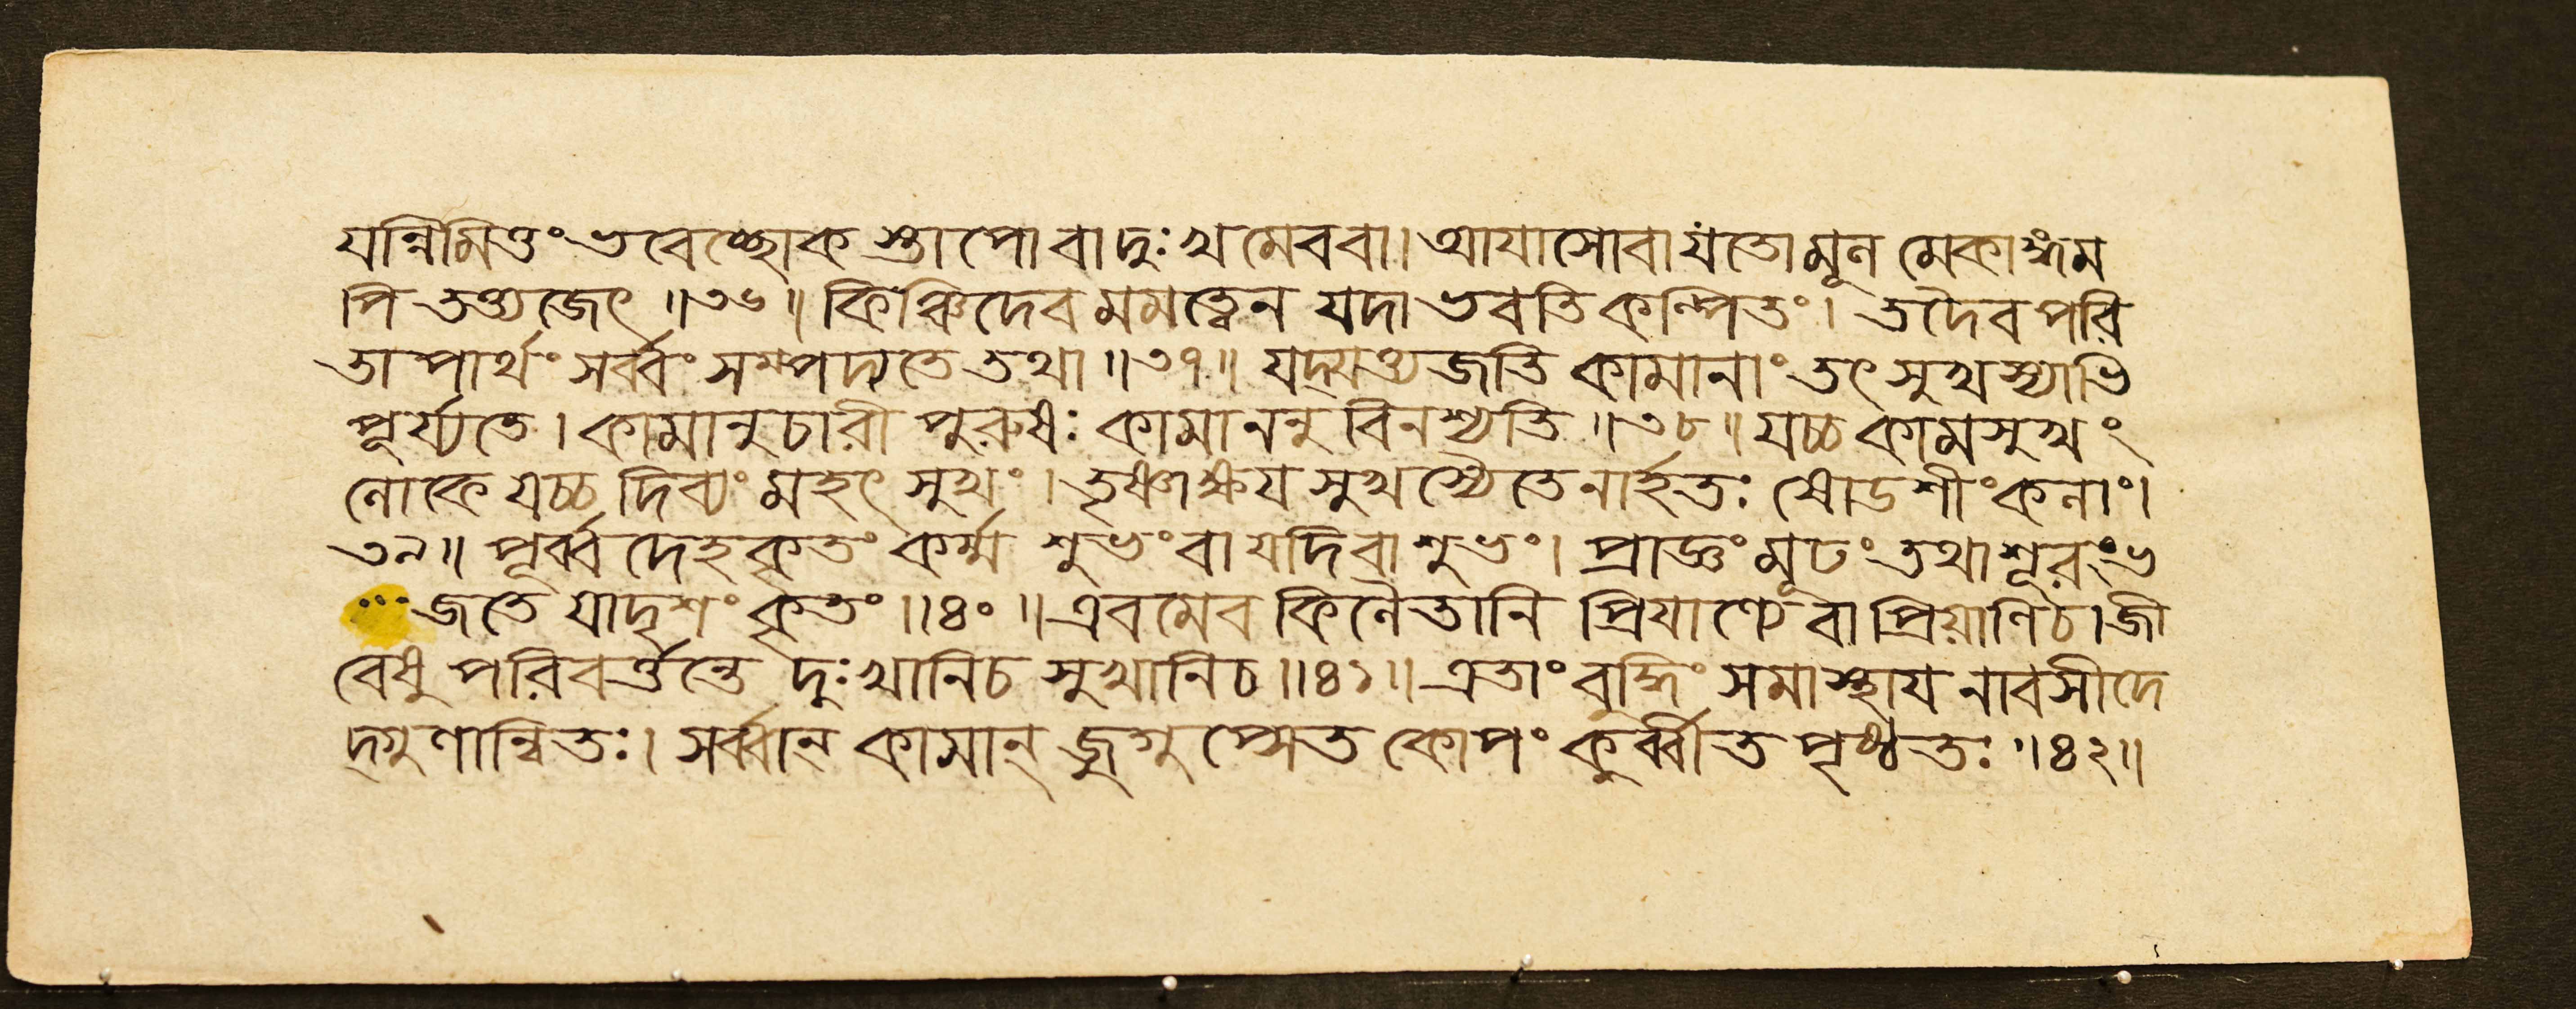 যন্নিমিত্তং ভবেচ্ছোক স্তাপো বা দুঃখমেববা। আযাসোবা যতো মূল মেকাঙ্গম
পি তত্ত্যজেৎ ॥৩৬॥ কিঞ্চিদেব মমত্বেন যদা ভবতি কল্পিতং। তদৈব পরি
তাপার্থং সর্ব্বং সম্পদ্যতে তথা ॥৩৭॥ যদ্যত্ত্যজতি কামানাং তৎ সুখস্যাভি
পূর্য্যতে। কামানুচারী পুরুষঃ কামাননু বিনশ্যতি ॥৩৮॥ যচ্চ কামসুখং
লোকে যচ্চ দিব্যং মহৎ সুখং। তৃষ্ণাক্ষয সুখস্যৈতে নার্হতঃ ষোডশীং কলাং।
৩৯॥ পূর্ব্ব দেহ কৃতং কর্ম্ম শুভং বা যদিবা শুভং। প্রাজ্ঞং মূঢং তথা শূরং ভ
জতে যাদৃশং কৃতং ॥৪০॥ এবমেব কিলৈতানি প্রিযাণ্যেবা প্রিয়াণিচ। জী
বেষু পরিবর্ত্তন্তে দুঃখানিচ সুখানিচ ॥৪১॥ এতাং বুদ্ধিং সমাস্থায নাবসীদে
দ্গুণান্বিতঃ। সর্ব্বান্ কামান্ জুগুপ্সেত কোপং কুর্ব্বীত পৃষ্ঠতঃ ॥৪২॥